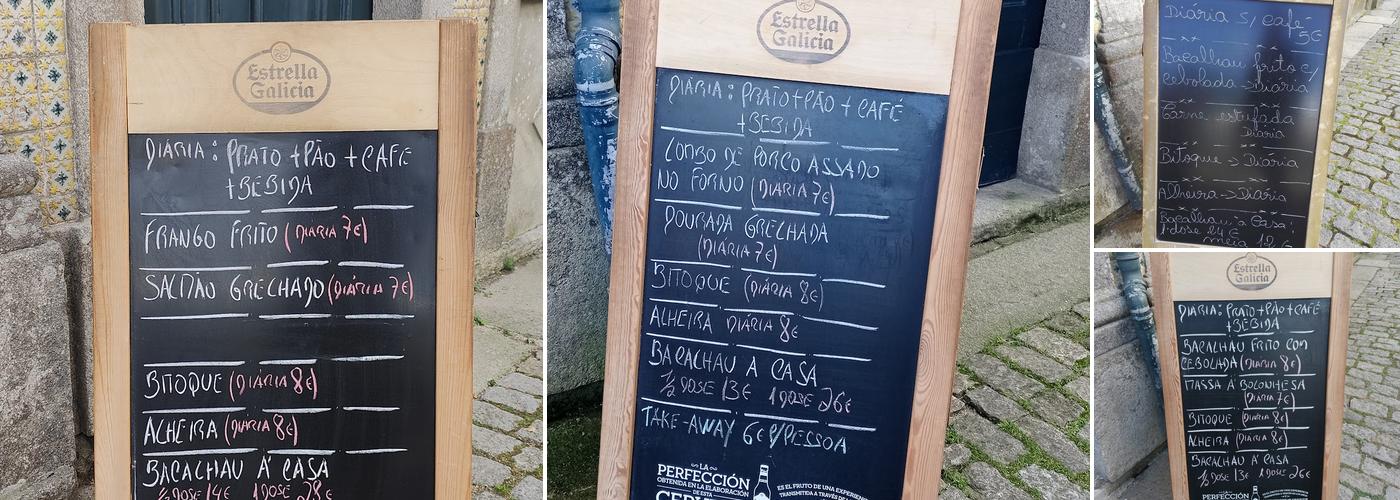 Estrella
Galicia
DIÁRIA: PRATO + PÃO + CAFÉ
+ BEBIDA
FRANGO FRITO (DIÁRIA 7€)
SALMÃO GRELHADO (DIÁRIA 7€)
BITOQUE (DIÁRIA 8€)
ALHEIRA (DIÁRIA 8€)
BACALHAU Á CASA
½ DOSE 14€ 1 DOSE 28€
Estrella
Galicia
DIÁRIA: PRATO + PÃO + CAFÉ
+ BEBIDA
LOMBO DE PORCO ASSADO
NO FORNO (DIÁRIA 7€)
DOURADA GRELHADA
(DIÁRIA 7€)
BITOQUE (DIÁRIA 8€)
ALHEIRA DIÁRIA 8€
BACALHAU A CASA
½ DOSE 13€ 1 DOSE 26€
TAKE-AWAY 6€ P/PESSOA
LA
PERFECCIÓN
OBTENIDA EN LA ELABORACIÓN
DE ESTA
ES EL FRUTO DE UNA EXPERIENC
TRANSMITIDA A TRAVÉS DE
Diária S/ café
5€
Bacalhau frito c/
cebolada -> Diária
Carne estufada
Diária
Bitoque -> Diária
Alheira -> Diária
Bacalhau à Casa:
1 dose 24€
meia 12€
Estrella
Galicia
DIARIA: PRATO + PÃO + CAFÉ
+ BEBIDA
BACALHAU FRITO COM
CEBOLADA (DIÁRIA 8€)
MASSA Á BOLONHESA
(DIÁRIA 7€)
BITOQUE (DIÁRIA 8€)
ALHEIRA (DIÁRIA 8€)
BACALHAU Á CASA
½ DOSE 13€ 1 DOSE 26€
PERFECCIÓN